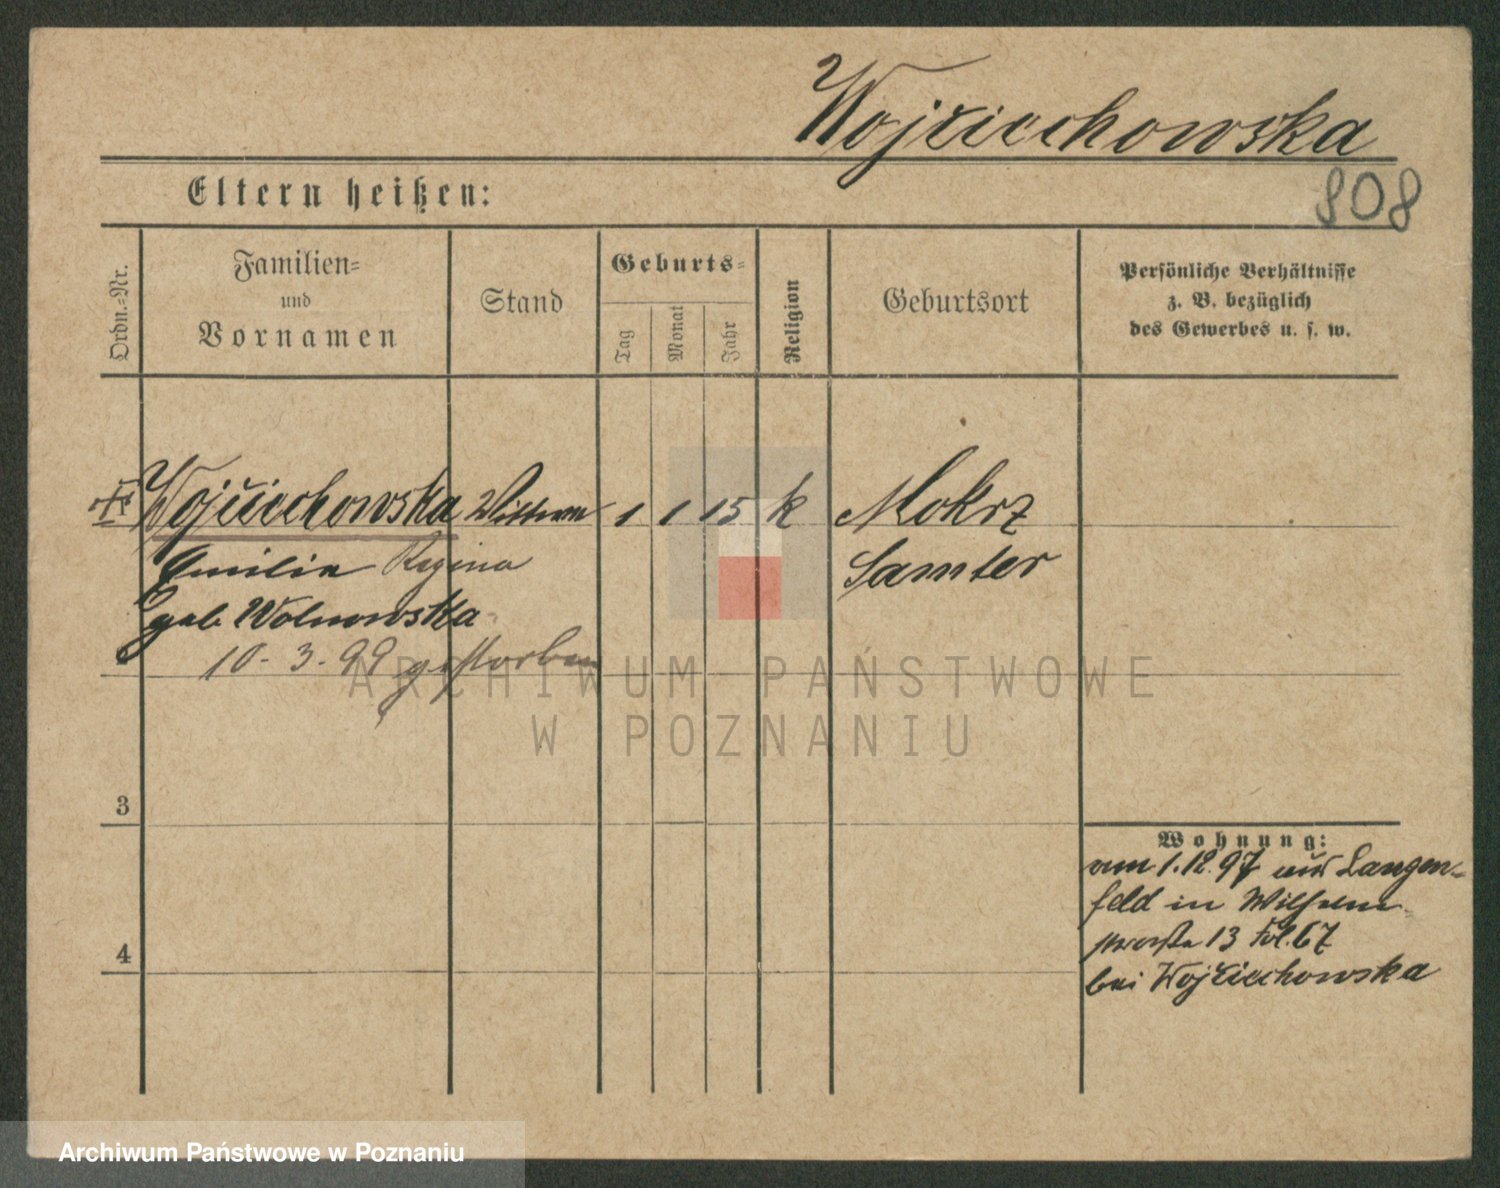 Wojciechowska
808
Eltern heißen:
Ordn.-Nr.
Familien-
und
Vornamen
Stand
Geburts-
Tag
Monat
Jahr
Religion
Geburtsort
Persönliche Verhältnisse
z. B. bezüglich
des Gewerbes u. s. w.
Wojciechowska Wittwe 1 1 15 k Mokrz
Emilie Regina Samter
geb. Wolnowska
10. 3. 99 gestorben
3
4
Wohnung:
am 1.12.97 aus Langen-
feld in Wilhelm
straße 13 Fol. 67
bei Wojciechowska
ARCHIWUM PAŃSTWOWE
W POZNANIU
Archiwum Państwowe w Poznaniu